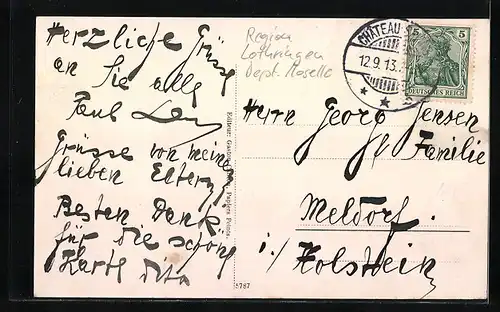 Herzliche Grüße
an Sie alle
Paul
Grüsse von meinen
lieben Eltern
Besten Dank
für die schöne
Karte Dita
Region
Lothringen
Dept. Moselle
CHÂTEAU
12.9.13.
5 5
DEUTSCHES REICH
Herrn Georg Jensen
Familie
Meldorf.
i./Holstein
Editeur: Papiers Peints.
5787